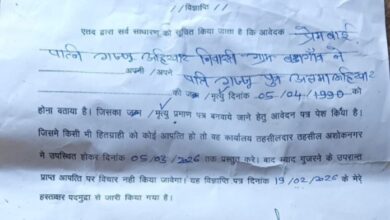 // विज्ञप्ति //
एतद द्वारा सर्व साधारण को सूचित किया जाता है कि आवेदक प्रेमबाई
पत्नि गज्जू अहिरवार निवासी ग्राम बरगाँव ने
अपनी / अपने पति गज्जू पुत्र
की जन्म / मृत्यु दिनांक 05/04/1990 को
होना बताया है। जिसका जन्म / मृत्यु प्रमाण पत्र बनवाये जाने हेतु आवेदन पत्र पेश किया है।
जिसमे किसी भी हितग्राही को कोई आपत्ति हो तो वह कार्यालय तहसीलदार तहसील अशोकनगर
मे उपस्थित होकर दिनांक 05/03/2026 तक प्रस्तुत करे। बाद म्याद गुजरने के उपरान्त
प्राप्त आपत्ति पर विचार नहीं किया जावेगा। यह विज्ञप्ति पत्र दिनांक 19/02/2026 के मेरे
हस्ताक्षर पदमुद्रा से जारी किया गया है।